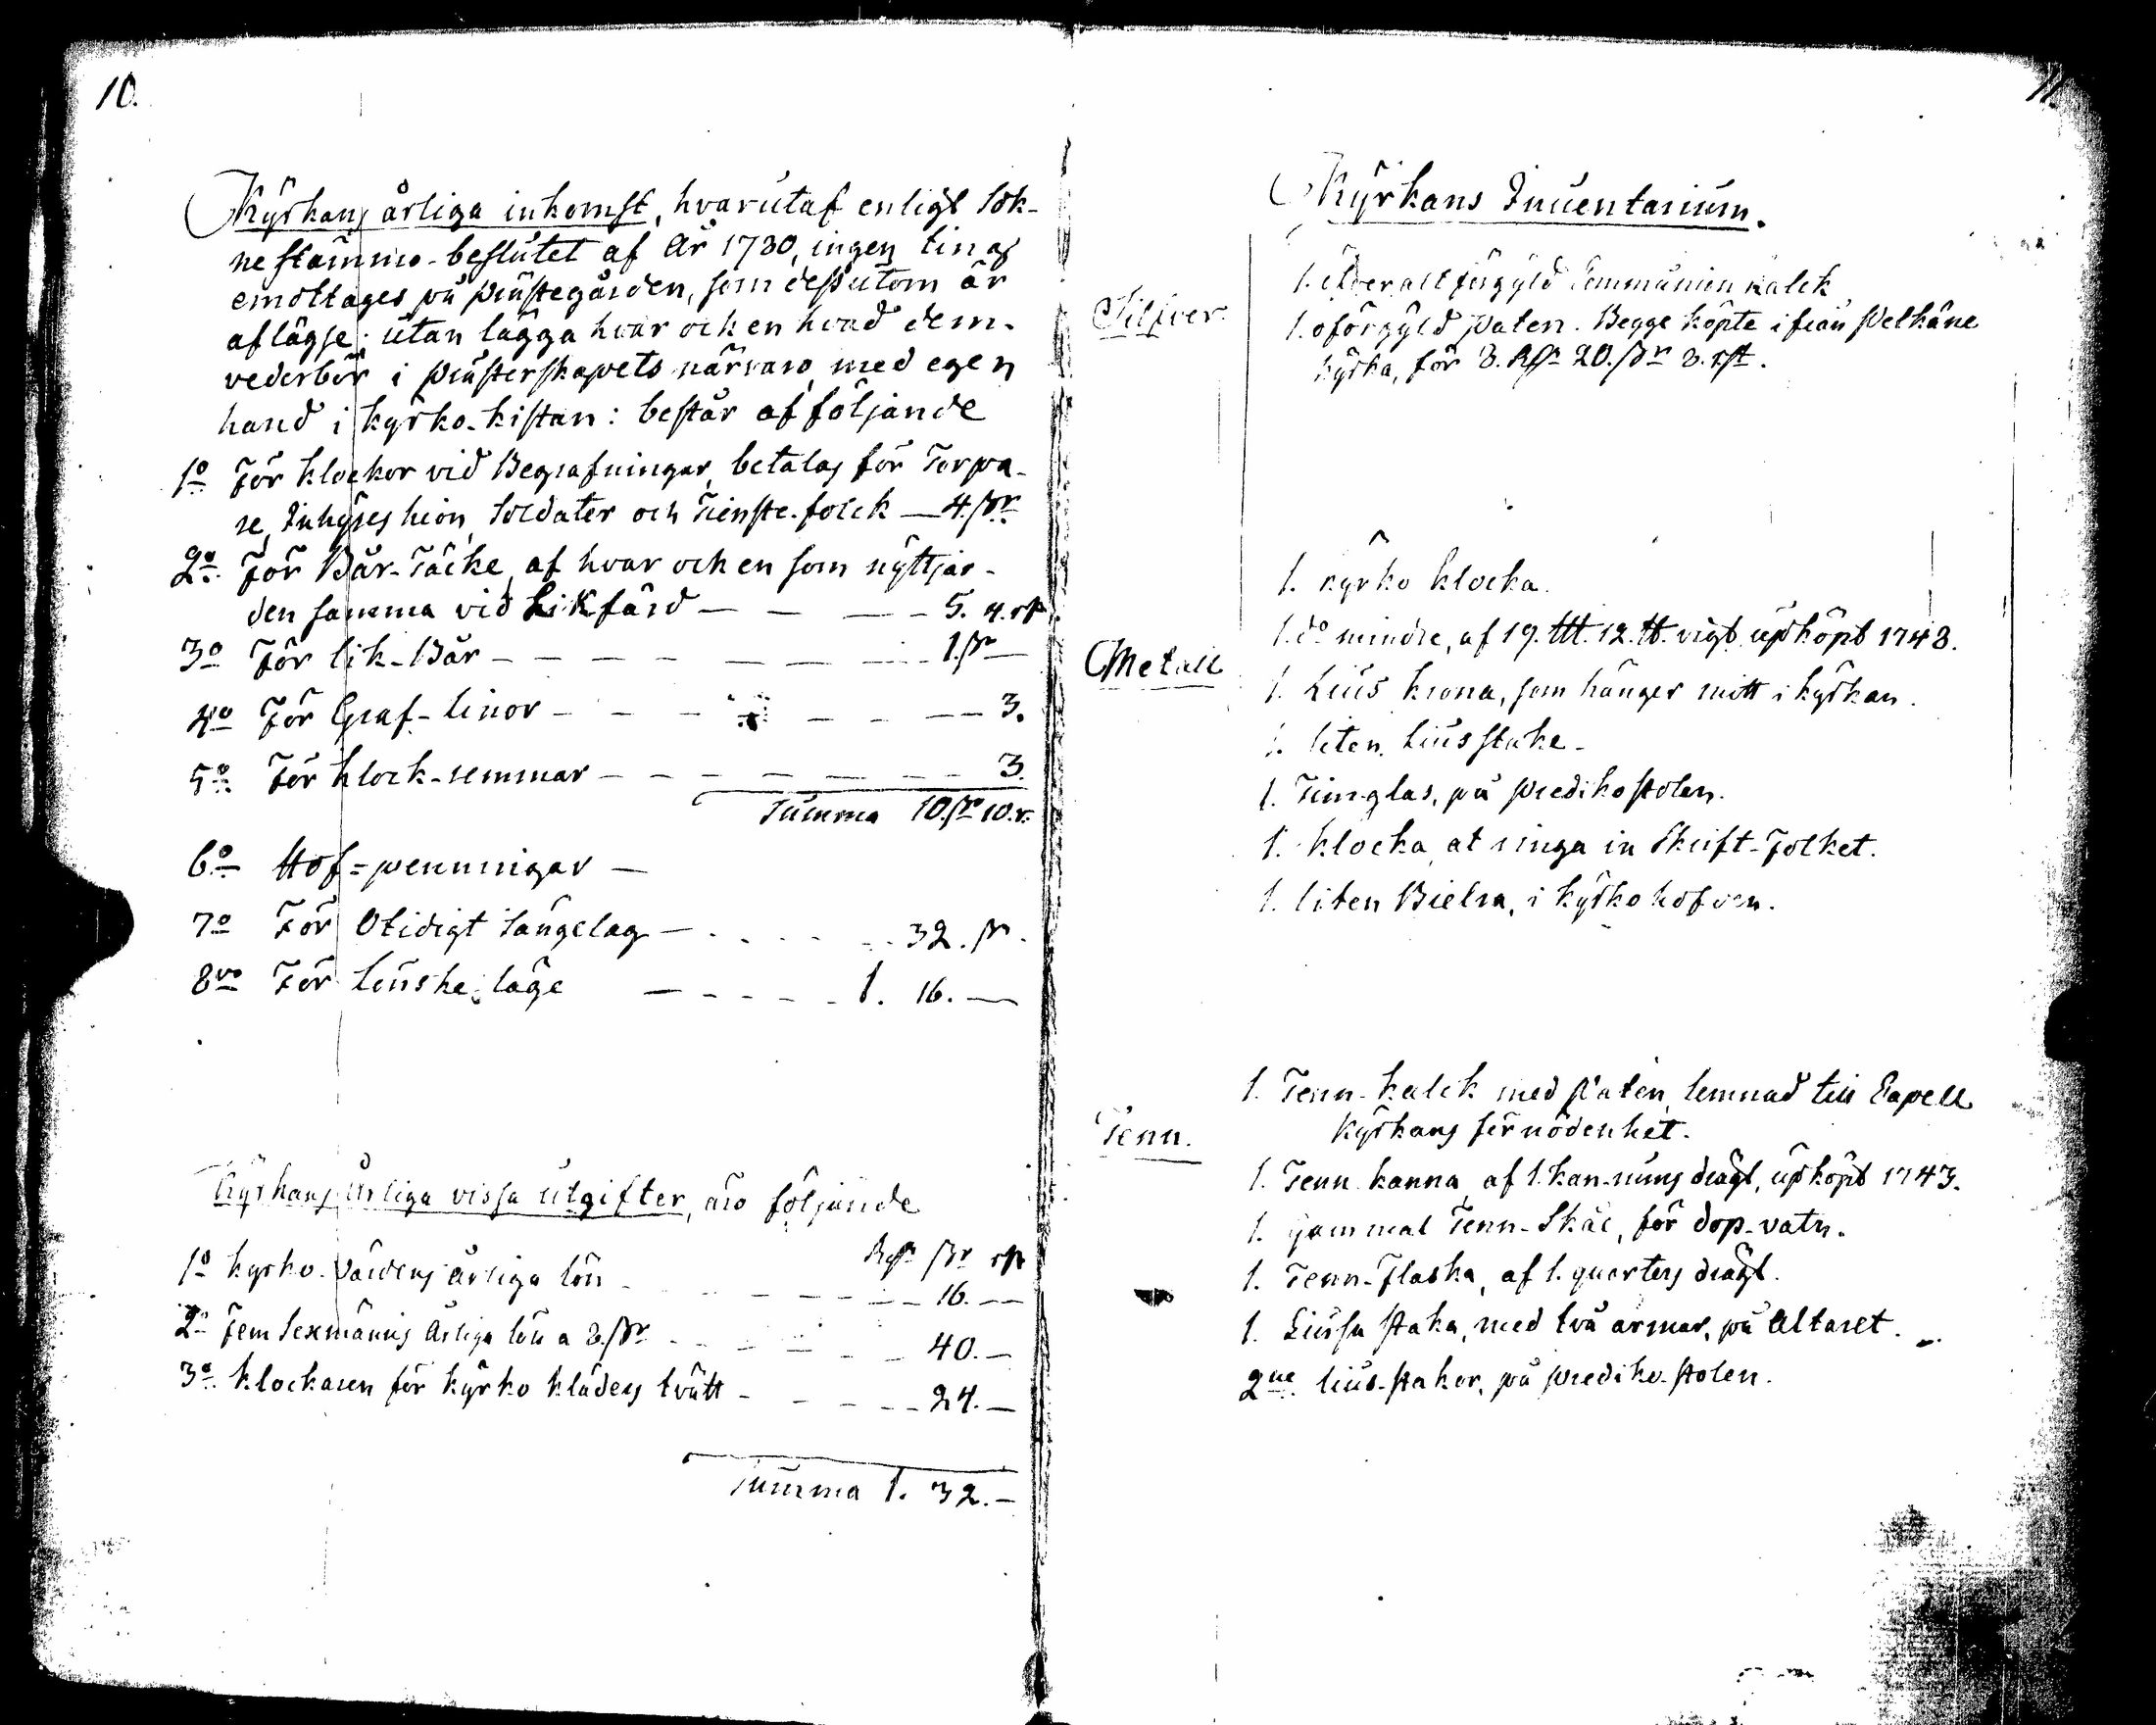 10.
Kyrkans årliga inkomst, hvarutaf enligt Sok-
ne stämmo-beslutet af År 1780, ingen ting
emottages på prästegården, som dessutom är
aflägse: utan lägga hvar och en hvad dem-
vederbör i prästerskapets närvaro, med egen
hand i kyrko-kistan: består af följande
1o För klockor vid Begrafningar, betalas för Torpa-
re, Inhyses hion, Soldater och Tienste-folck — 4. sr
2o För Bår-Täcke, af hvar och en som nyttjar-
den samma vid Likfärd — — — 5. 4. rst
3o För lik-Bår — — — — — — — 1. sr —
4o För Graf-linor — — — — — — 3.
5o För klock-remmar — — — — — — 3.
Summa 10. sr 10. r.
6o Hof=penningar —
7o För Otidigt sängelag — 32. sr.
8vo För Lönske läge — — — 1. 16. —
Kyrkans Årliga vissa utgifter, äro följande
Rdr sr rst
1o kyrko-värdens årliga lön — — — 16. —
2o Fem Sexmänns Årliga lön a 8. sr — — 40. —
3o klockaren för kyrko kläders tvätt — — 24. —
Summa 1. 32. —
11.
Kyrkans Inventarium.
Silfver.
1. öfver allt förgyld Communion kalck
1. oförgyld Paten. Begge köpte ifrån Pelkäne
kyrka, för 3. Rdr 20. sr 3. rst.
Metall
1. kyrko klocka.
1. do mindre, af 19. ttt. 12. tt. vigt upköpt 1748.
1. Lius krona, som hänger mitt i kyrkan.
1. liten Lius stake.
1. Timglas, på predikostolen.
1. klocka, at ringa in Skrift-Folket.
1. liten Bielra, i kyrko hofven.
Tenn.
1. Tenn-kalck med Paten, lemnad till Capell
Kyrkans förnödenhet.
1. Tenn kanna, af 1. kan-nuns drägt, upköpt 1743.
1. gammal Tenn-Skål, för dop-vatn.
1. Tenn-Flaska, af 1. quarters drägt.
1. Liussa staka, med två armar, på Altaret.
2ne lius-stakor, på prediko-stolen.